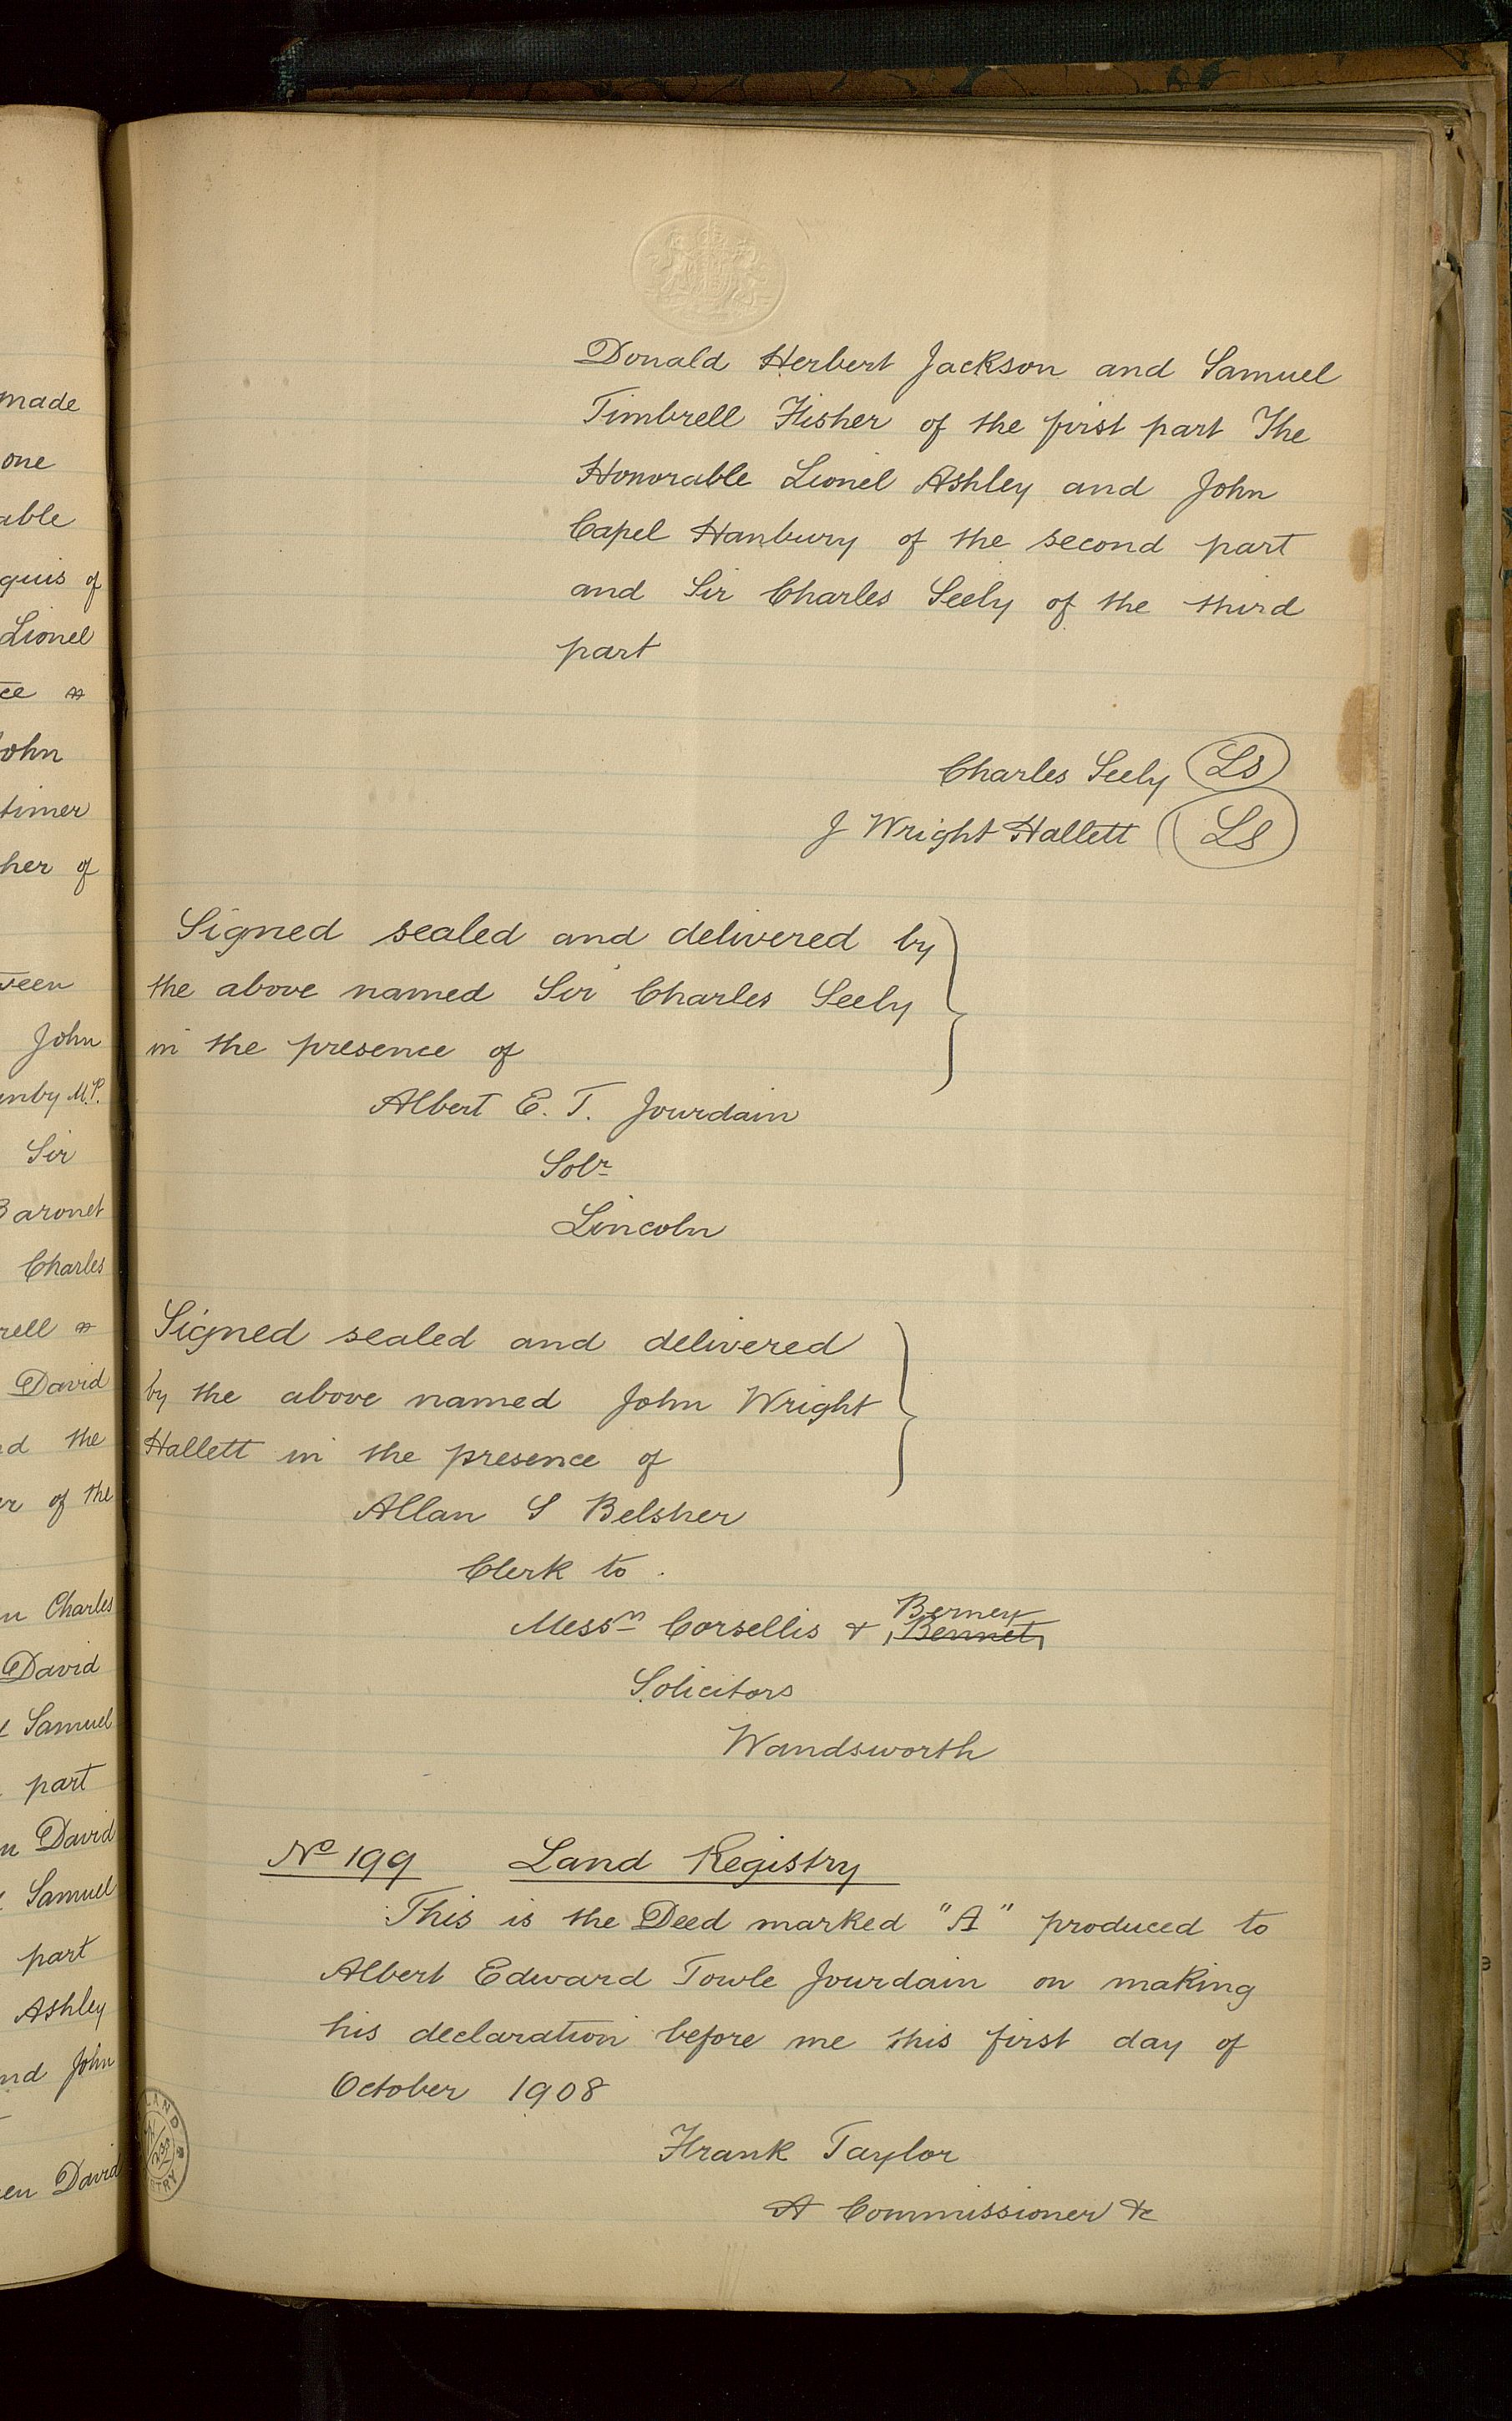 made
one
able
quis of
Lionel
ce &
John
timer
her of
ween
John
enby M.P.
Sir
Baronet
Charles
rell &
David
nd the
er of the
n Charles
David
& Samuel
part
n David
& Samuel
part
Ashley
nd John
en David
Donald Herbert Jackson and Samuel
Timbrell Fisher of the first part The
Honorable Lionel Ashley and John
Capel Hanbury of the second part
and Sir Charles Seely of the third
part
Charles Seely LS
J Wright Hallett LS
Signed sealed and delivered by
the above named Sir Charles Seely
in the presence of
Albert E. T. Jourdain
Solr
Lincoln
Signed sealed and delivered
by the above named John Wright
Hallett in the presence of
Allan S Belsher
Clerk to
Berney
Messrs Corsellis & Bennet
Solicitors
Wandsworth
No 199 Land Registry
This is the Deed marked "A" produced to
Albert Edward Towle Jourdain on making
his declaration before me this first day of
October 1908
Frank Taylor
A Commissioner &c
LAND